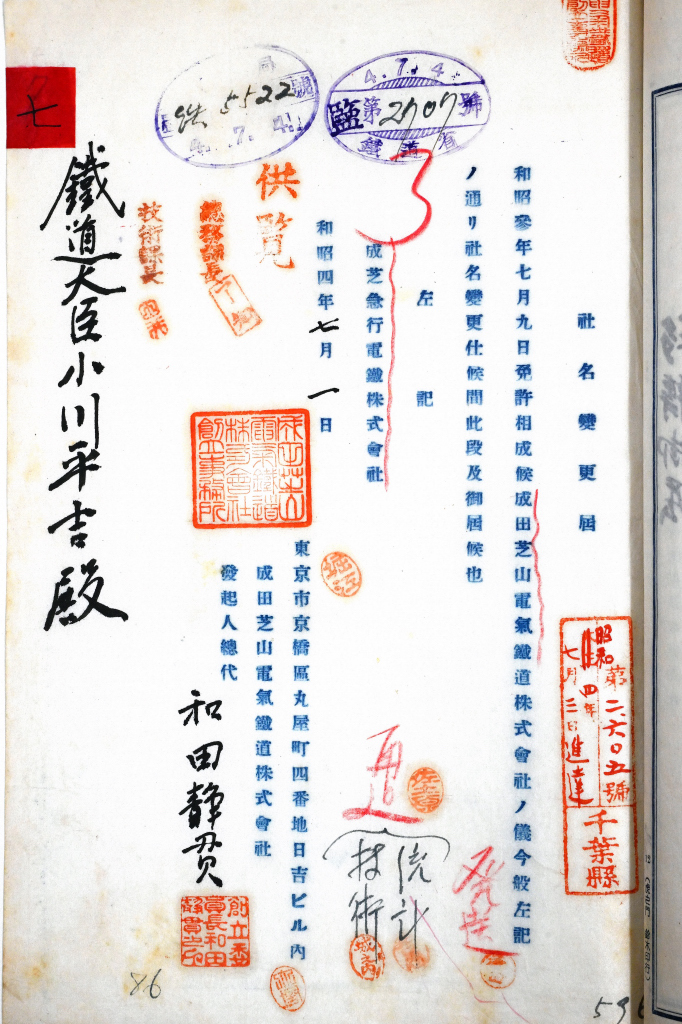 社名變更屆
和昭參年七月九日免許相成候成田芝山電氣鐵道株式會社ノ儀今般左記
ノ通リ社名變更仕候間此段及御屆候也
左記
成芝急行電鐵株式會社
和昭四年七月一日
東京市京橋區丸屋町四番地日吉ビル内
成田芝山電氣鐵道株式會社
發起人總代
和田靜貫
鐵道大臣小川平吉殿
供覧
總務課長
技術課長
七
4.7.4
監第2707號
鐵道省
5522
4.7.4
第二六〇五號
昭和四年
七月三日進達
千葉縣
統計
技術
發送
86